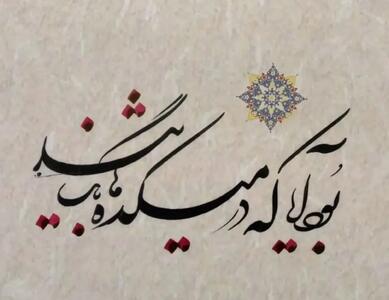 بُوَد آیا که در میکده‌ها بگشایند